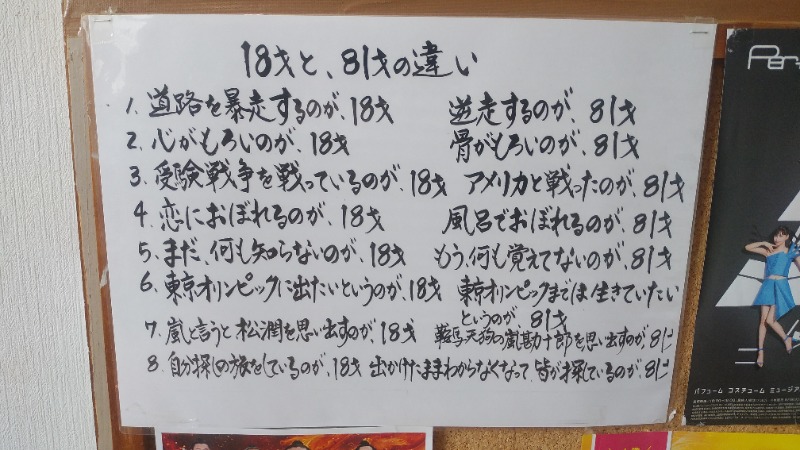 18才と、81才の違い
1. 道路を暴走するのが、18才 逆走するのが、81才
2. 心がもろいのが、18才 骨がもろいのが、81才
3. 受験戦争を戦っているのが、18才 アメリカと戦ったのが、81才
4. 恋におぼれるのが、18才 風呂でおぼれるのが、81才
5. まだ、何も知らないのが、18才 もう、何も覚えてないのが、81才
6. 東京オリンピックに出たいというのが、18才 東京オリンピックまでは生きていたい
というのが 81才
7. 嵐と言うと松潤を思い出すのが、18才 鞍馬天狗の嵐勘十郎を思い出すのが、81才
8. 自分探しの旅をしているのが、18才 出かけたままわからなくなって皆が探しているのが、81才
Per
パフューム コスチューム ミュージア